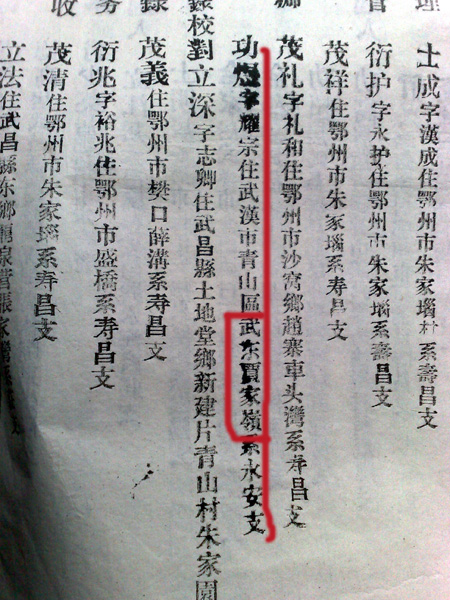 理
士成字漢成住鄂州市朱家瑙村系壽昌支
衍护字永护住鄂州市朱家瑙系壽昌支
茂祥住鄂州市朱家瑙系寿昌支
茂礼字礼和住鄂州市沙窝鄉趙寨車头灣系寿昌支
功字耀宗住武漢市青山區武东賈家嶺系永安支
校對立深字志卿住武昌縣土地堂鄉新建片青山村朱家園
錄
茂義住鄂州市樊口薛溝系寿昌支
務
衍兆字裕兆住鄂州市盛橋系寿昌支
收
茂清住鄂州市朱家瑙系寿昌支
立法住武昌縣东鄉